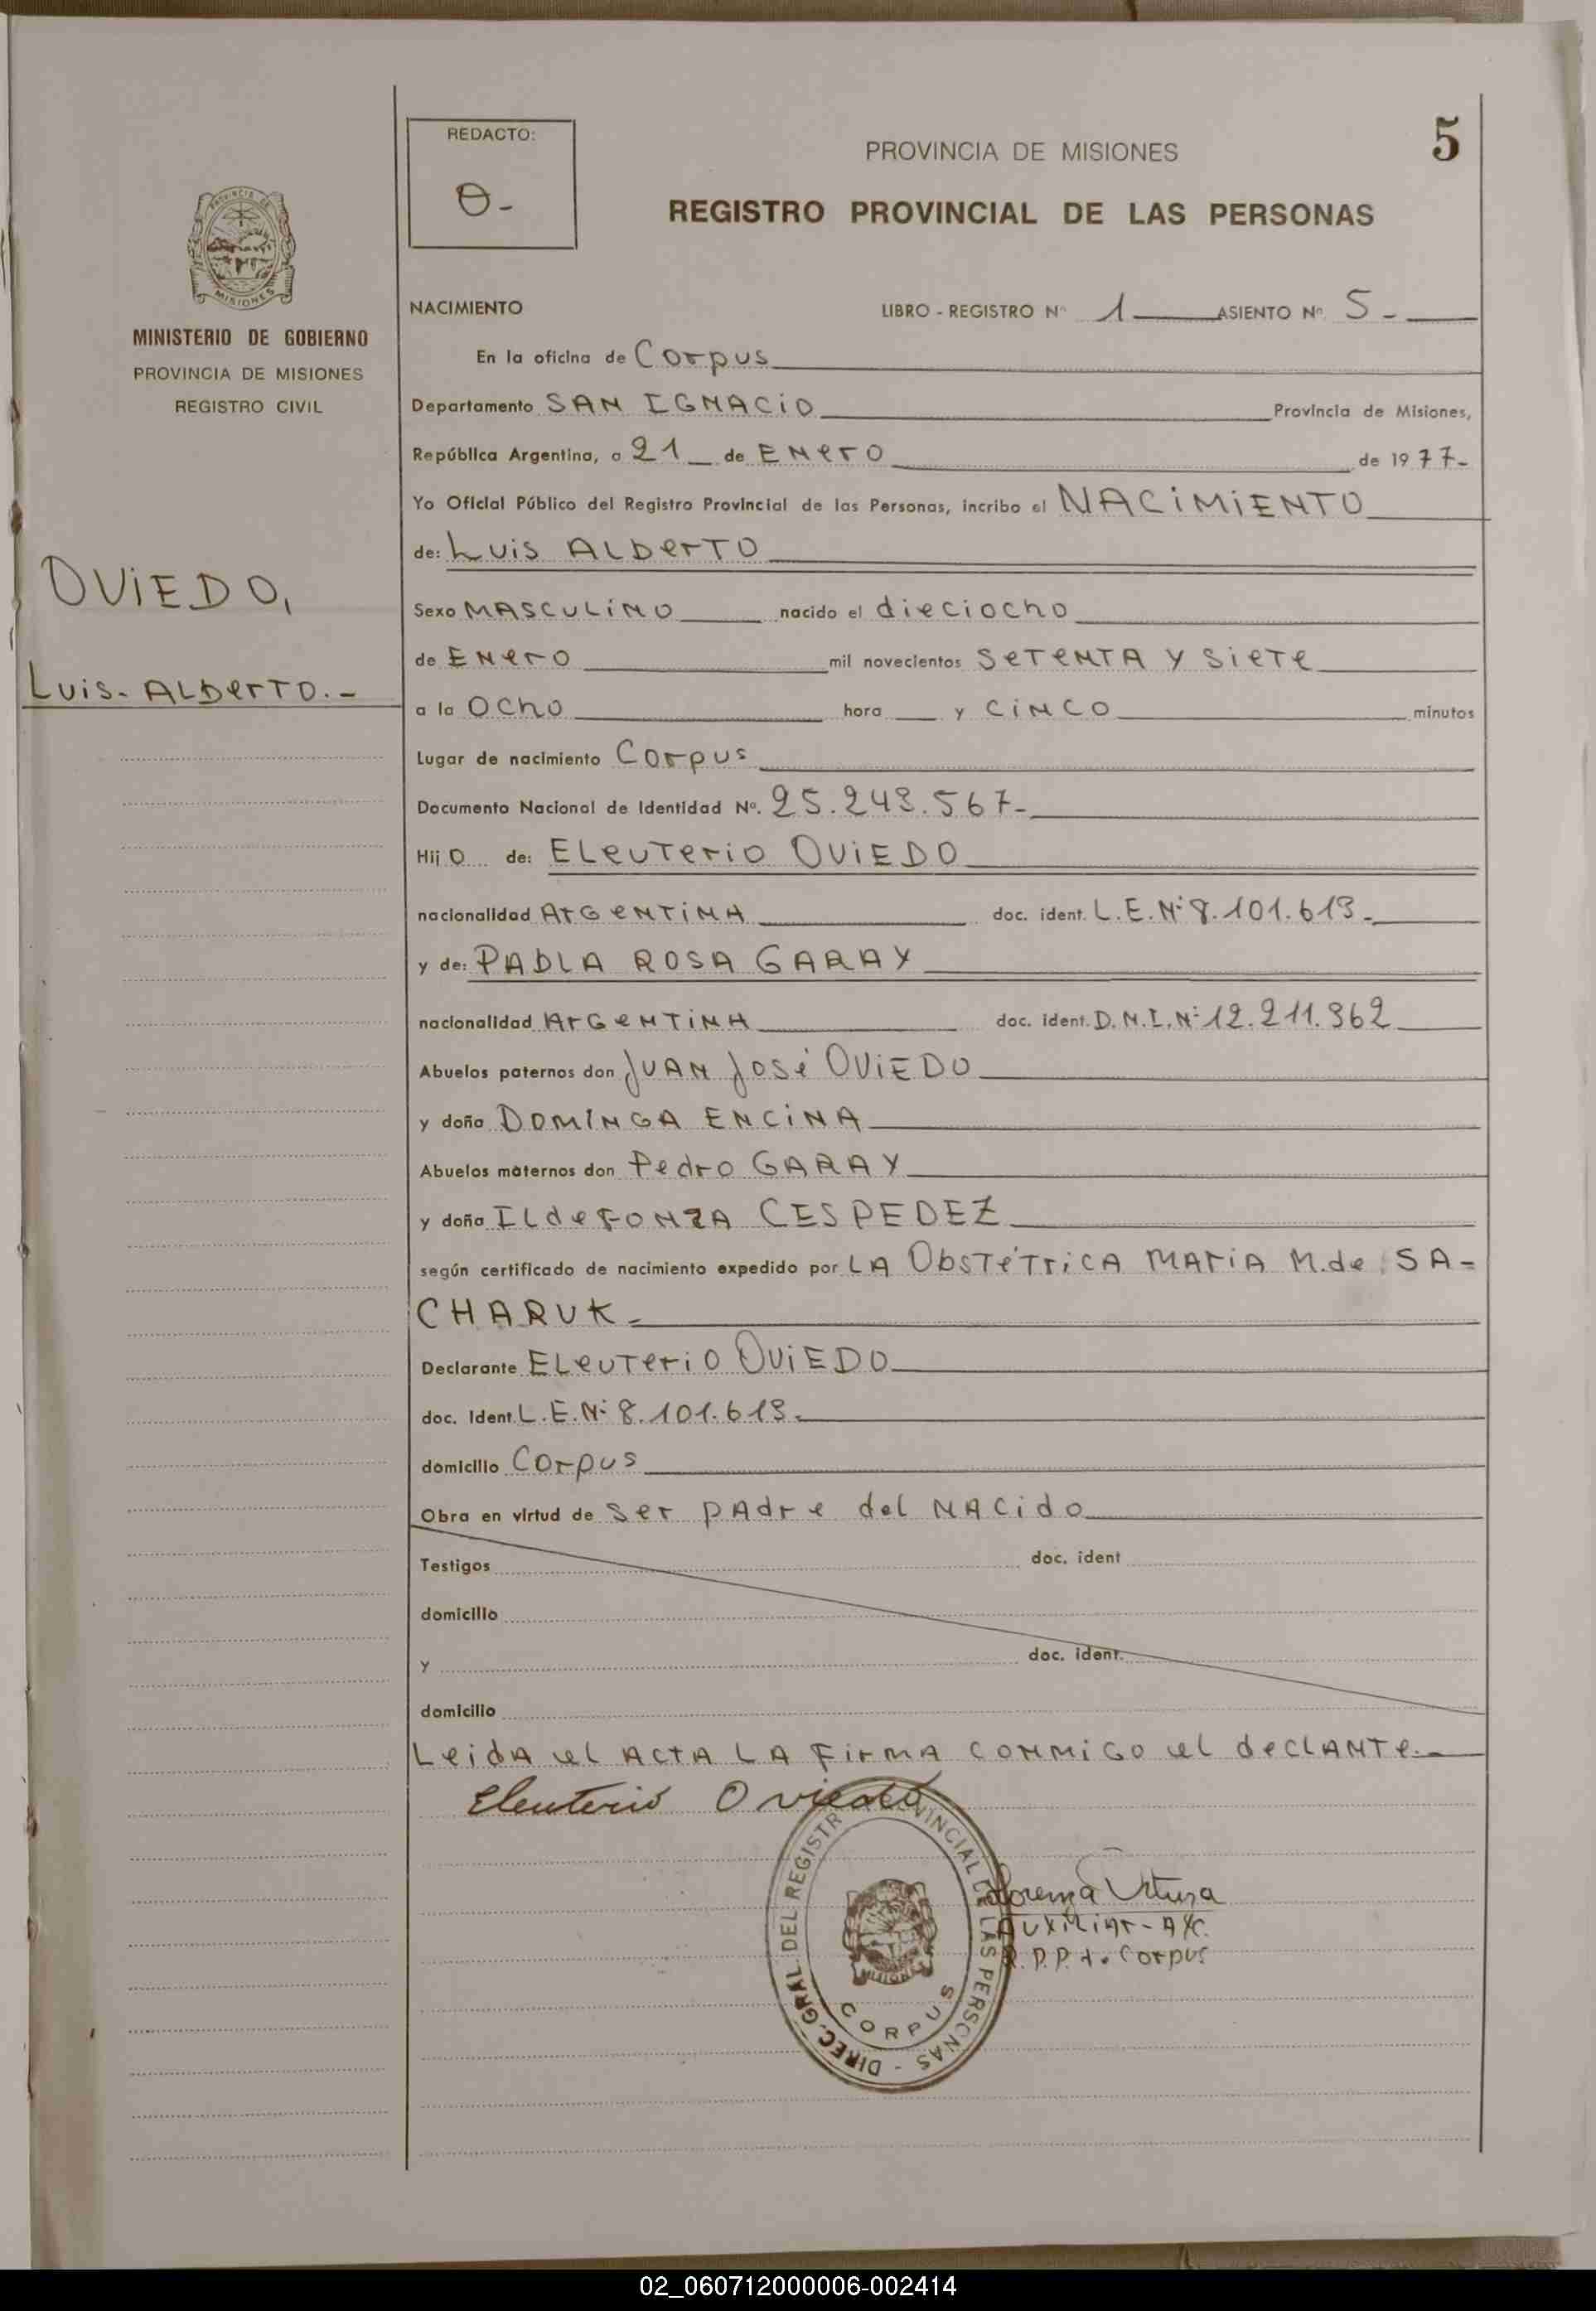 5
REDACTO:
O-
PROVINCIA DE MISIONES
REGISTRO PROVINCIAL DE LAS PERSONAS
PROVINCIA DE
MISIONES
MINISTERIO DE GOBIERNO
PROVINCIA DE MISIONES
REGISTRO CIVIL
OVIEDO,
Luis-ALBERTO.-
NACIMIENTO LIBRO - REGISTRO Nº 1 ASIENTO Nº 5-
En la oficina de Corpus
Departamento SAN IGNACIO Provincia de Misiones,
República Argentina, a 21 de ENERO de 1977-
Yo Oficial Público del Registro Provincial de las Personas, incribo el NACIMIENTO
de: Luis ALBERTO
Sexo MASCULINO nacido el dieciocho
de ENERO mil novecientos SETENTA Y SIETE
a la OCHO hora y CINCO minutos
Lugar de nacimiento Corpus
Documento Nacional de Identidad Nº. 25.243.567-
Hij O de: ELEUTERIO OVIEDO
nacionalidad ARGENTINA doc. ident. L.E.Nº 8.101.613-
y de: PABLA ROSA GARAY
nacionalidad ARGENTINA doc. ident. D.N.I.Nº 12.211.362
Abuelos paternos don JUAN José OVIEDO
y doña DOMINGA ENCINA
Abuelos maternos don Pedro GARAY
y doña ILdeFONZA CESPEDEZ
según certificado de nacimiento expedido por LA ObSTéTriCA MARIA M.de SA-
CHARUK-
Declarante ELEUTERIO OVIEDO
doc. Ident. L.E.Nº 8.101.613-
domicilio Corpus
Obra en virtud de ser padre del NACido
Testigos doc. ident
domicilio
y doc. ident.
domicilio
Leida el ACTA LA FIRMA CONMIGO el decLANTE.-
Eleuterio Oviedo
DIREC. GRAL. DEL REGISTRO PROVINCIAL DE LAS PERSONAS -
MISIONES
CORPUS
Auxiliar-A/C.
R.P.P. d. Corpus
02_060712000006-002414